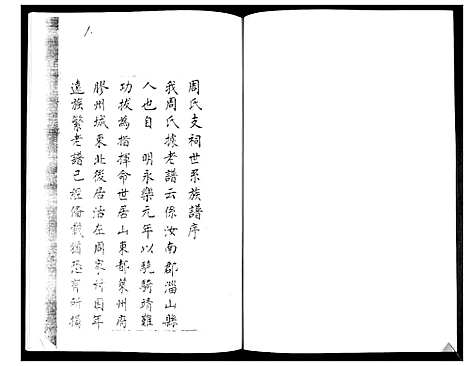 1.
周氏支祠世系族譜序
我周氏據老譜云係汝南郡淄山縣
人也自 明永樂元年以驍騎靖難
功拔為指揮命世居山東都萊州府
膠州城東北後居沽在周家村因年
遠族繁老譜已經脩載猶恐有所損